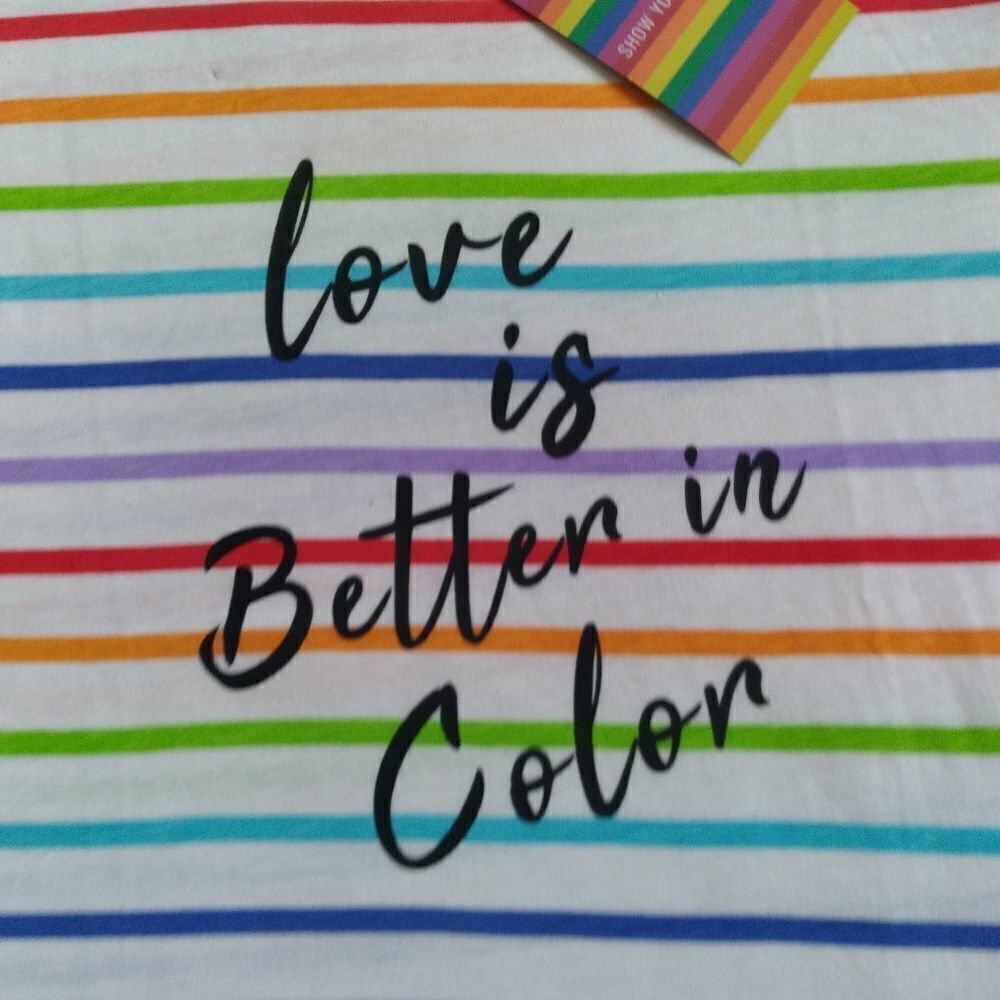 SHOW
love
is
Better in
Color